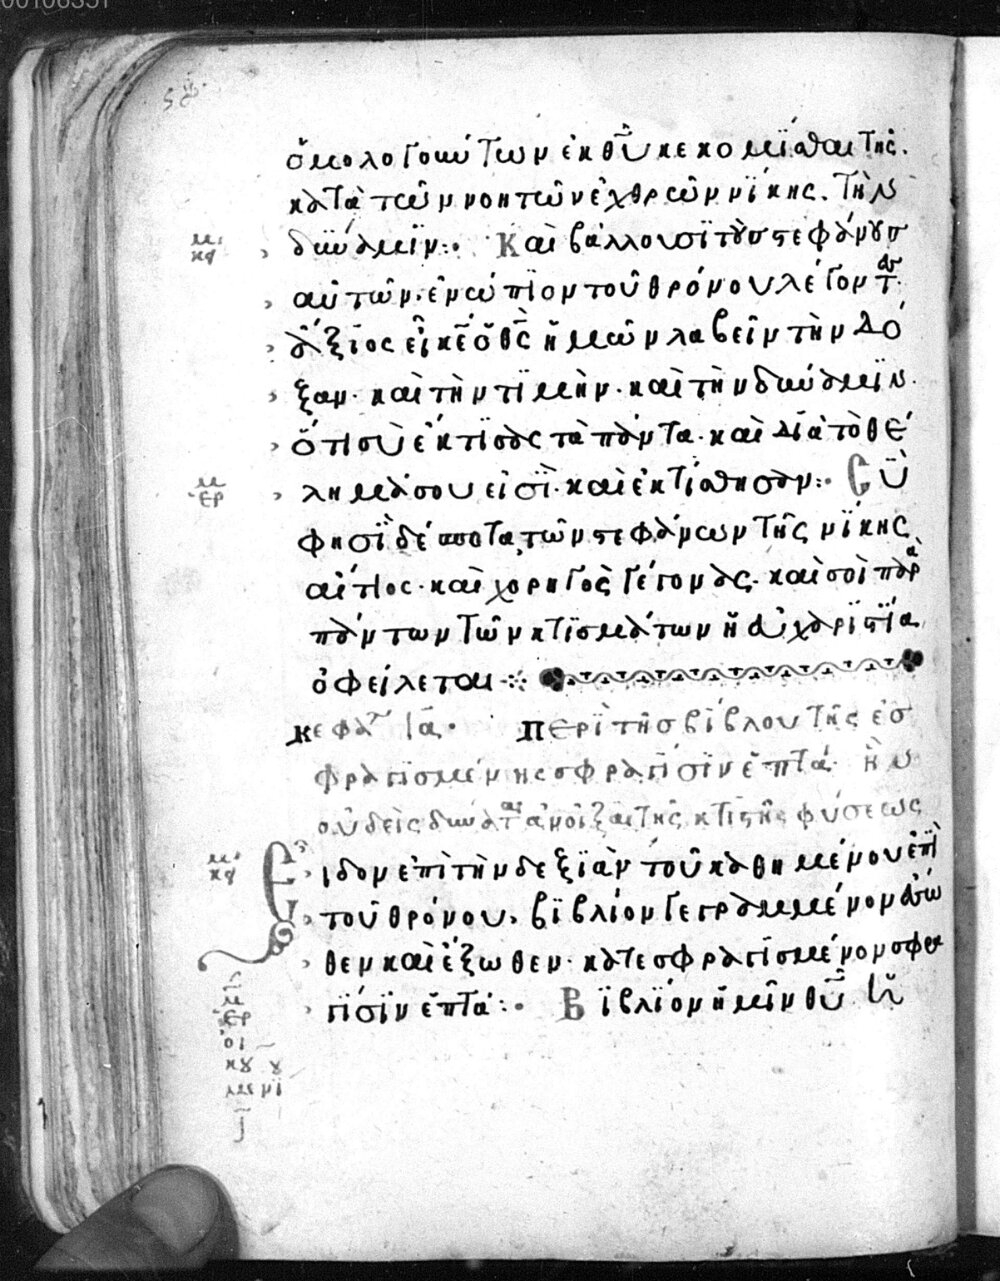 ὁμολογούντων ἐκ θῡ κεκομίσθαι τῆς
κατὰ τῶν νοητῶν ἐχθρῶν νίκης. τὴν
δύναμϊν:· Καὶ βάλλουσϊ τοὺς στεφάνους
αὐτῶν· ἐνώπϊον τοῦ θρόνου λέγοντ
ἄξϊος εἶ κε̄ ὁ θς̄ ἡμῶν λαβεῖν τὴν δό
ξαν· καὶ τὴν τϊμὴν· καὶ τὴν δύναμϊν·
ὅτι σὺ ἔκτϊσας τὰ πάντα· καὶ διὰ τὸ θέ
λημά σου εἰσϊ· καὶ ἐκτίσθησαν:· Σὺ
φησϊ δέσποτα τῶν στεφάνων τῆς νϊκης
αἴτιος· καὶ χορηγὸς γέγονας· καὶ σοὶ παρὰ
πάντων τῶν κτϊσμάτων ἡ εὐχαρϊστϊα
ὀφείλεται
κεφαλ ιᾱ· Περὶ τῆς βίβλου τῆς ἐσ
φραγϊσμένης σφραγίσϊν ἑπτά· ἣν
οὐδεὶς δύναται ἀνοῖξαι τῆς κτιστῆς φύσεως
Εἶδον ἐπὶ τὴν δεξϊὰν τοῦ καθημένου ἐπὶ
τοῦ θρόνου, βϊβλίον γεγραμμένον ἔσω
θεν καὶ ἔξωθεν· κατεσφραγϊσμένον σφρα
γϊσϊν ἑπτά:· Βϊβλϊον ἡμῖν θῡ